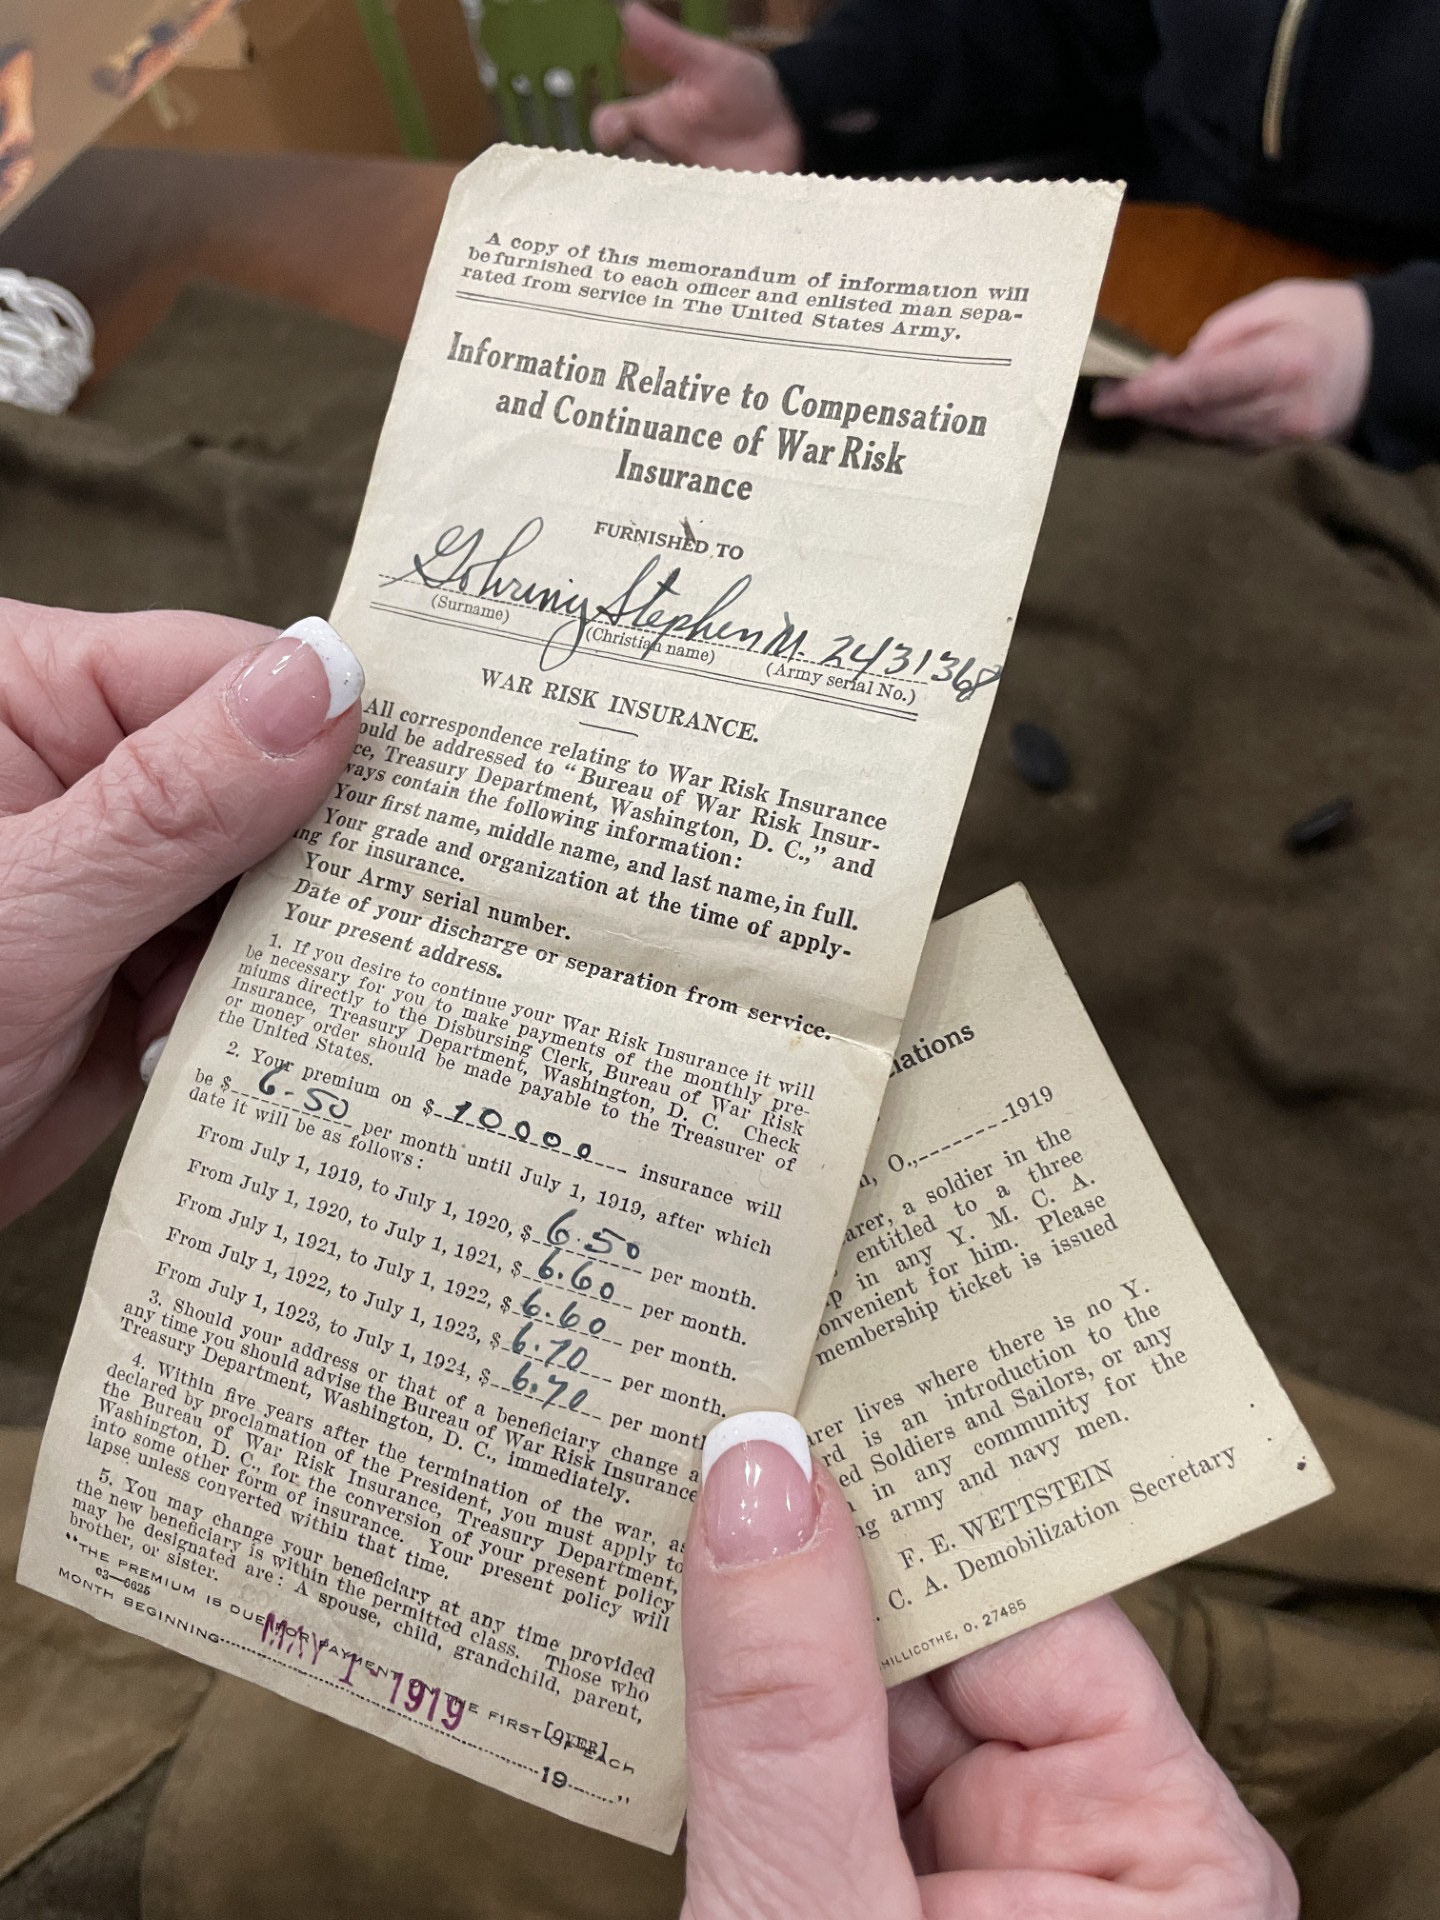 A copy of this memorandum of information will
be furnished to each officer and enlisted man sepa-
rated from service in The United States Army.
Information Relative to Compensation
and Continuance of War Risk
Insurance
FURNISHED TO
Gohring Stephen M. 2431368
(Surname) (Christian name) (Army serial No.)
WAR RISK INSURANCE.
All correspondence relating to War Risk Insurance
ould be addressed to "Bureau of War Risk Insur-
ce, Treasury Department, Washington, D. C.," and
ways contain the following information:
Your first name, middle name, and last name, in full.
Your grade and organization at the time of apply-
ing for insurance.
Your Army serial number.
Date of your discharge or separation from service.
Your present address.
1. If you desire to continue your War Risk Insurance it will
be necessary for you to make payments of the monthly pre-
miums directly to the Disbursing Clerk, Bureau of War Risk
Insurance, Treasury Department, Washington, D. C. Check
or money order should be made payable to the Treasurer of
the United States.
2. Your premium on $ 10000 insurance will
be $ 6.50 per month until July 1, 1919, after which
date it will be as follows:
From July 1, 1919, to July 1, 1920, $ 6.50 per month.
From July 1, 1920, to July 1, 1921, $ 6.60 per month.
From July 1, 1921, to July 1, 1922, $ 6.60 per month.
From July 1, 1922, to July 1, 1923, $ 6.70 per month.
From July 1, 1923, to July 1, 1924, $ 6.70 per month
3. Should your address or that of a beneficiary change a
any time you should advise the Bureau of War Risk Insurance
Treasury Department, Washington, D. C., immediately.
4. Within five years after the termination of the war, as
declared by proclamation of the President, you must apply to
the Bureau of War Risk Insurance, Treasury Department,
Washington, D. C., for the conversion of your present policy
into some other form of insurance. Your present policy will
lapse unless converted within that time.
5. You may change your beneficiary at any time provided
the new beneficiary is within the permitted class. Those who
may be designated are: A spouse, child, grandchild, parent,
brother, or sister.
c3—6625 [OVER]
"THE PREMIUM IS DUE FOR PAYMENT ON THE FIRST OF EACH
MONTH BEGINNING MAY 1 - 1919 19 "
iations
, O., 1919
arer, a soldier in the
entitled to a three
p in any Y. M. C. A.
onvenient for him. Please
membership ticket is issued
rer lives where there is no Y.
rd is an introduction to the
ed Soldiers and Sailors, or any
in any community for the
ng army and navy men.
F. E. WETTSTEIN
. C. A. Demobilization Secretary
HILLICOTHE, O. 27485